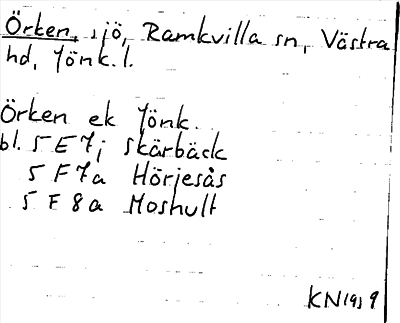 Örken, sjö, Ramkvilla sn, Västra
hd, Jönk. l.
Örken ek Jönk.
bl. 5 E 7j Skärbäck
5 F 7a Hörjesås
5 F 8a Moshult
KN